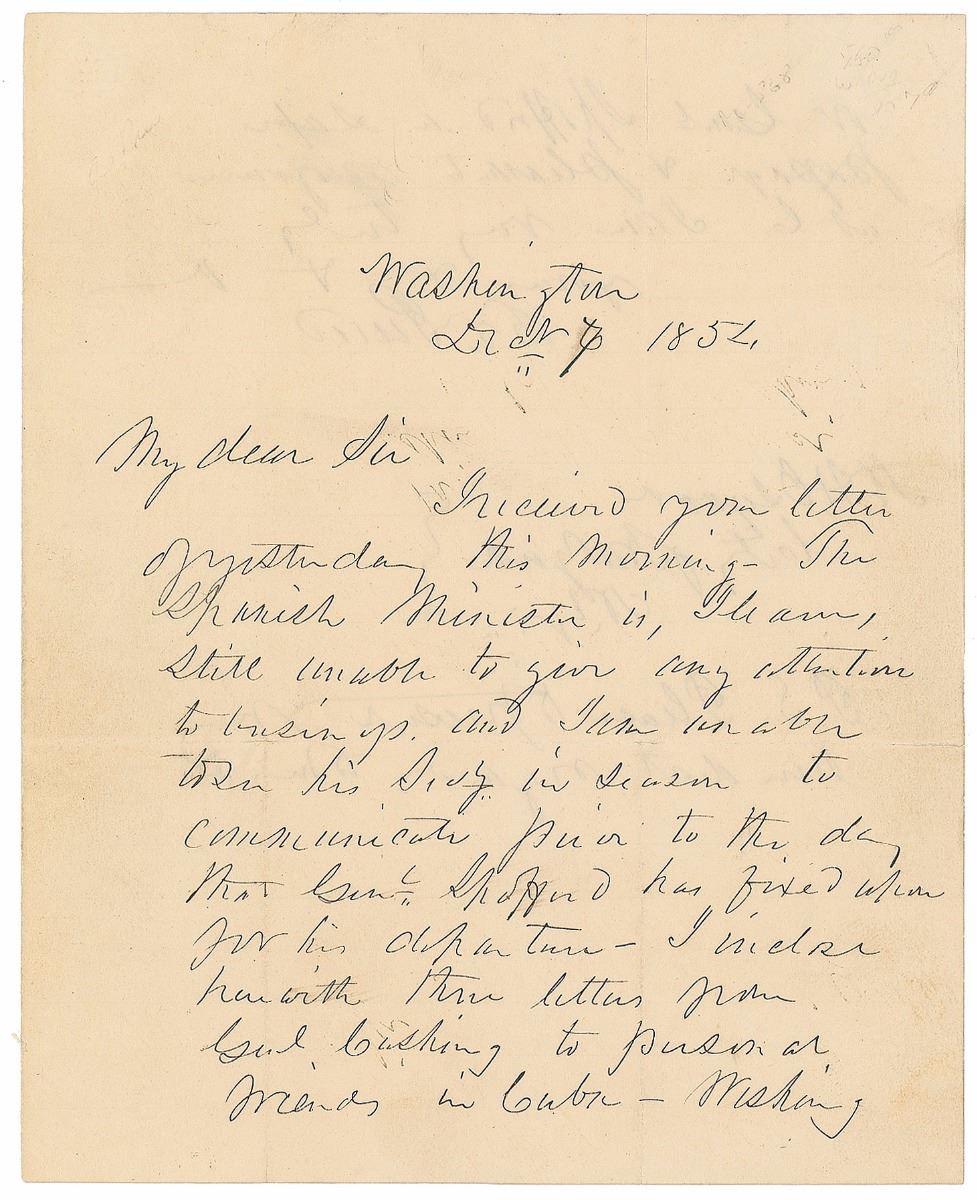 Washington
1854
My dear Sir
I received your letter
of yesterday this morning - The
Spanish Minister is, I learn,
still unable to give any attention
to business. and I am unable
to see his Secty. in season to
communicate prior to the day
that Genl. Spofford has fixed upon
for his departure - I inclose
herewith three letters from
Genl. Cushing to personal
friends in Cuba - Wishing